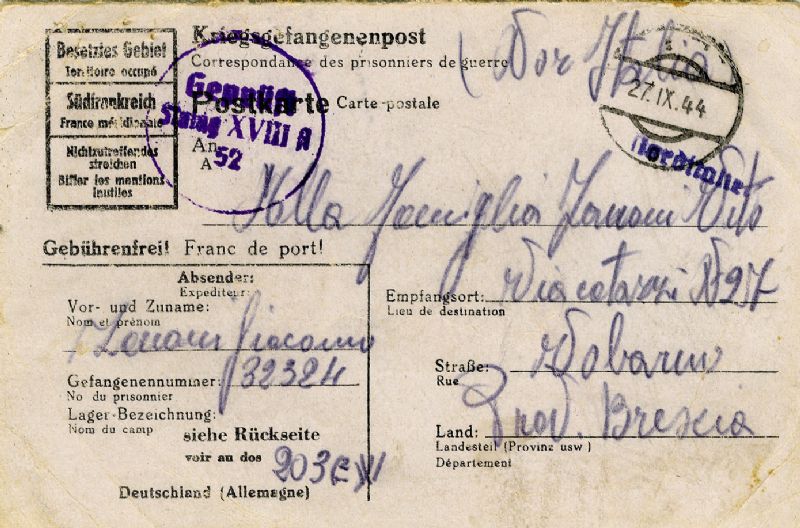 Besetztes Gebiet
Territoire occupé
Südfrankreich
France méridionale
Nichtzutreffendes
streichen
Biffer les mentions
inutiles
Kriegsgefangenenpost
Correspondance des prisonniers de guerre
Postkarte Carte-postale
Geprüft
Stalag XVIII A
52
An
A
Nor Italia
27.IX.44
Norditalien
Alla Famiglia Zanoni Vito
Gebührenfrei! Franc de port!
Absender:
Expediteur:
Vor- und Zuname:
Nom et prénom
Zanoni Giacomo
Gefangenennummer: 32324
No du prisonnier
Lager-Bezeichnung:
Nom du camp
siehe Rückseite
voir au dos
203
Deutschland (Allemagne)
Empfangsort: N 27
Lieu de destination
Straße: Vobarno
Rue
Prov. Brescia
Land:
Landesteil (Provinz usw)
Département